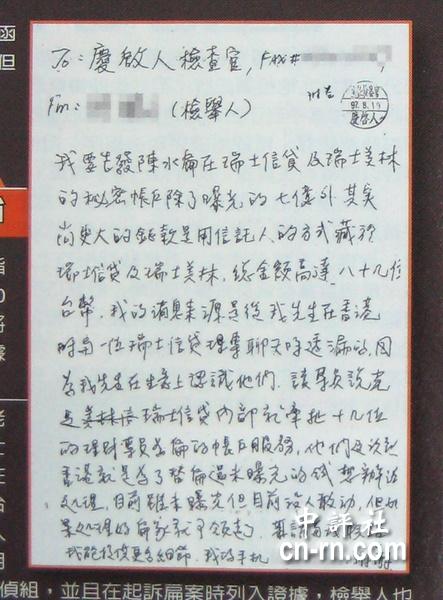 To: 慶啟人檢查官, FAX#
Fm: (檢舉人)
97.8.19
慶啟人
我要告發陳水扁在瑞士信貸及瑞士美林
的秘密帳戶除了曝光的七億外其實
尚更大的鉅款是用信託人的方式藏於
瑞士信貸及瑞士美林,總金額高達八十九億
台幣,我的消息來源是從我先生在香港
時與一位瑞士信貸理專聊天時透漏的,因
為我先生在生意上認識他們,該專員說光
是瑞士信貸內部就牽扯十九位
的理財專員為扁的帳戶服務,他們
香港就是為了替扁還未曝光的錢想辦法
處理,目前雖未曝光但目前沒人敢動,但如
果處理好扁家就可領走,
我能提供更多細節,我的手機
中評社
cn-rn.com
偵組,並且在起訴扁案時列入證據,檢舉人也
函
但
指
0
將
據
老
士
在
台
人
明